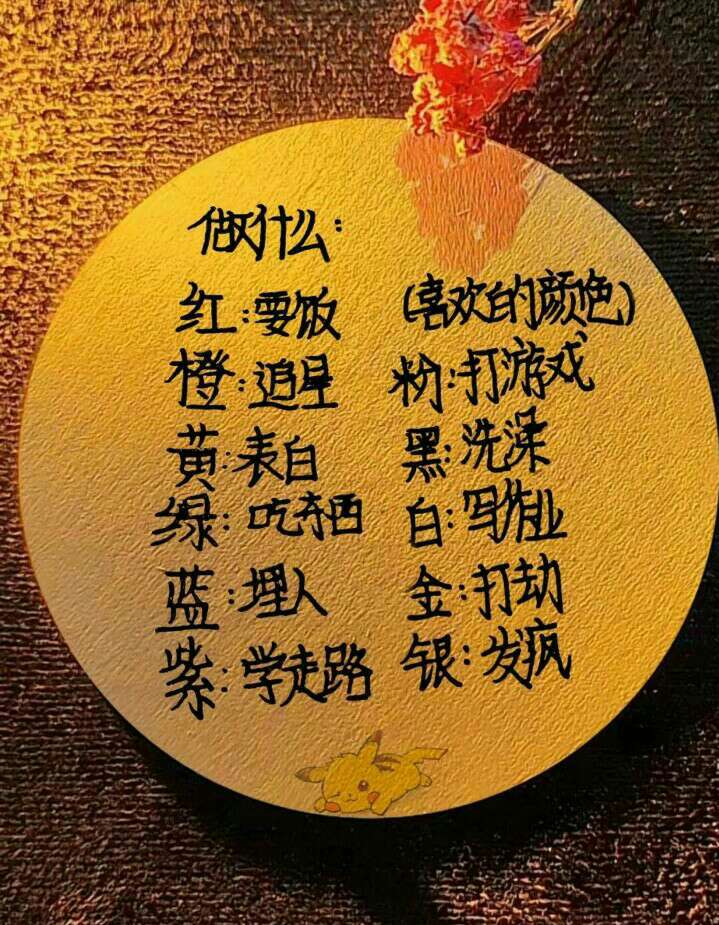 做什么:
红:要饭 (喜欢的颜色)
橙:追星 粉:打游戏
黄:表白 黑:洗澡
绿:吃东西 白:写作业
蓝:埋人 金:打劫
紫:学走路 银:发疯